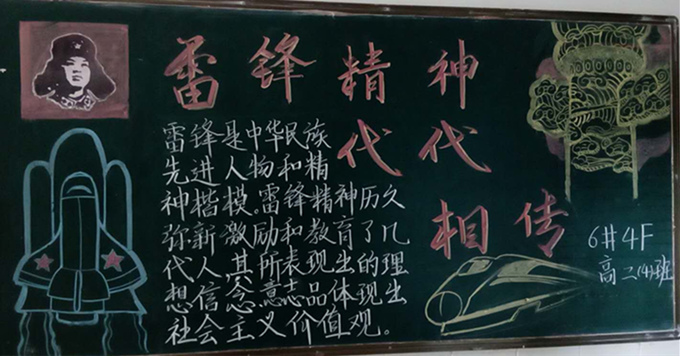 雷锋精神
代代
相传
雷锋是中华民族
先进人物和精
神楷模。雷锋精神历久
弥新激励和教育了几
代人,其所表现出的理
想信念意志品体现出
社会主义价值观。
6#4F
高二(4)班